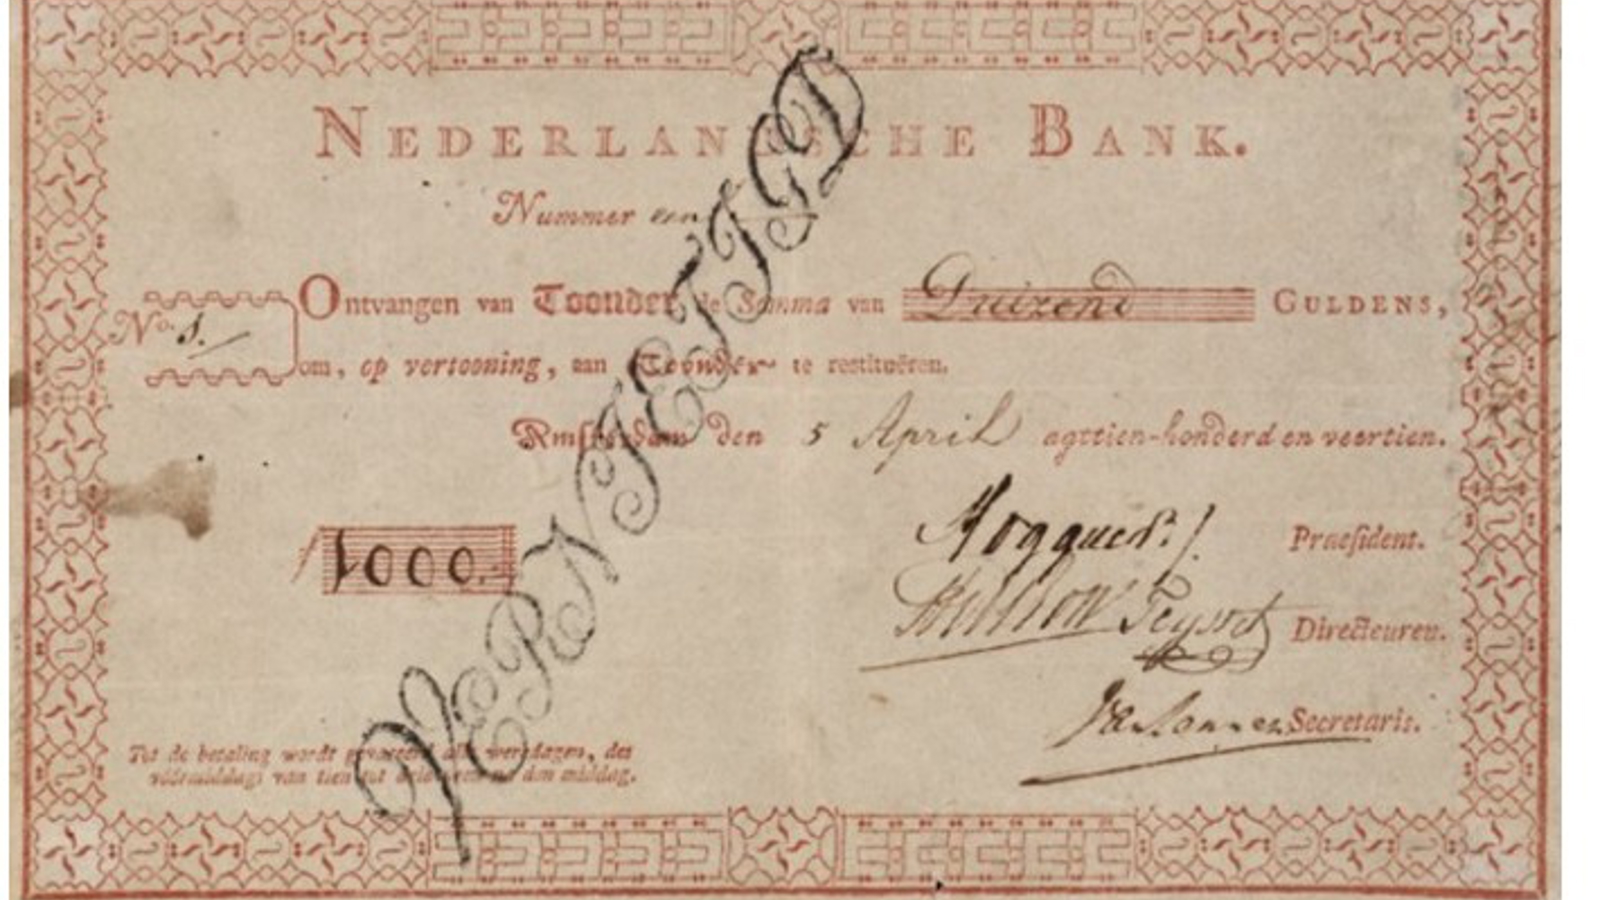 NEDERLANDSCHE BANK.
Nummer een
No. 1.
Ontvangen van Toonder, de Somma van Duizend GULDENS,
om, op vertooning, aan Toonder te restitueren.
Amsterdam den 5 April agttien-honderd en veertien.
VERNIETIGD
1000.
Hogguer Præsident.
Teysset Directeuren.
Secretaris.
Tot de betaling wordt gevaceerd alle werkdagen, des
voormiddags van tien tot
den middag.